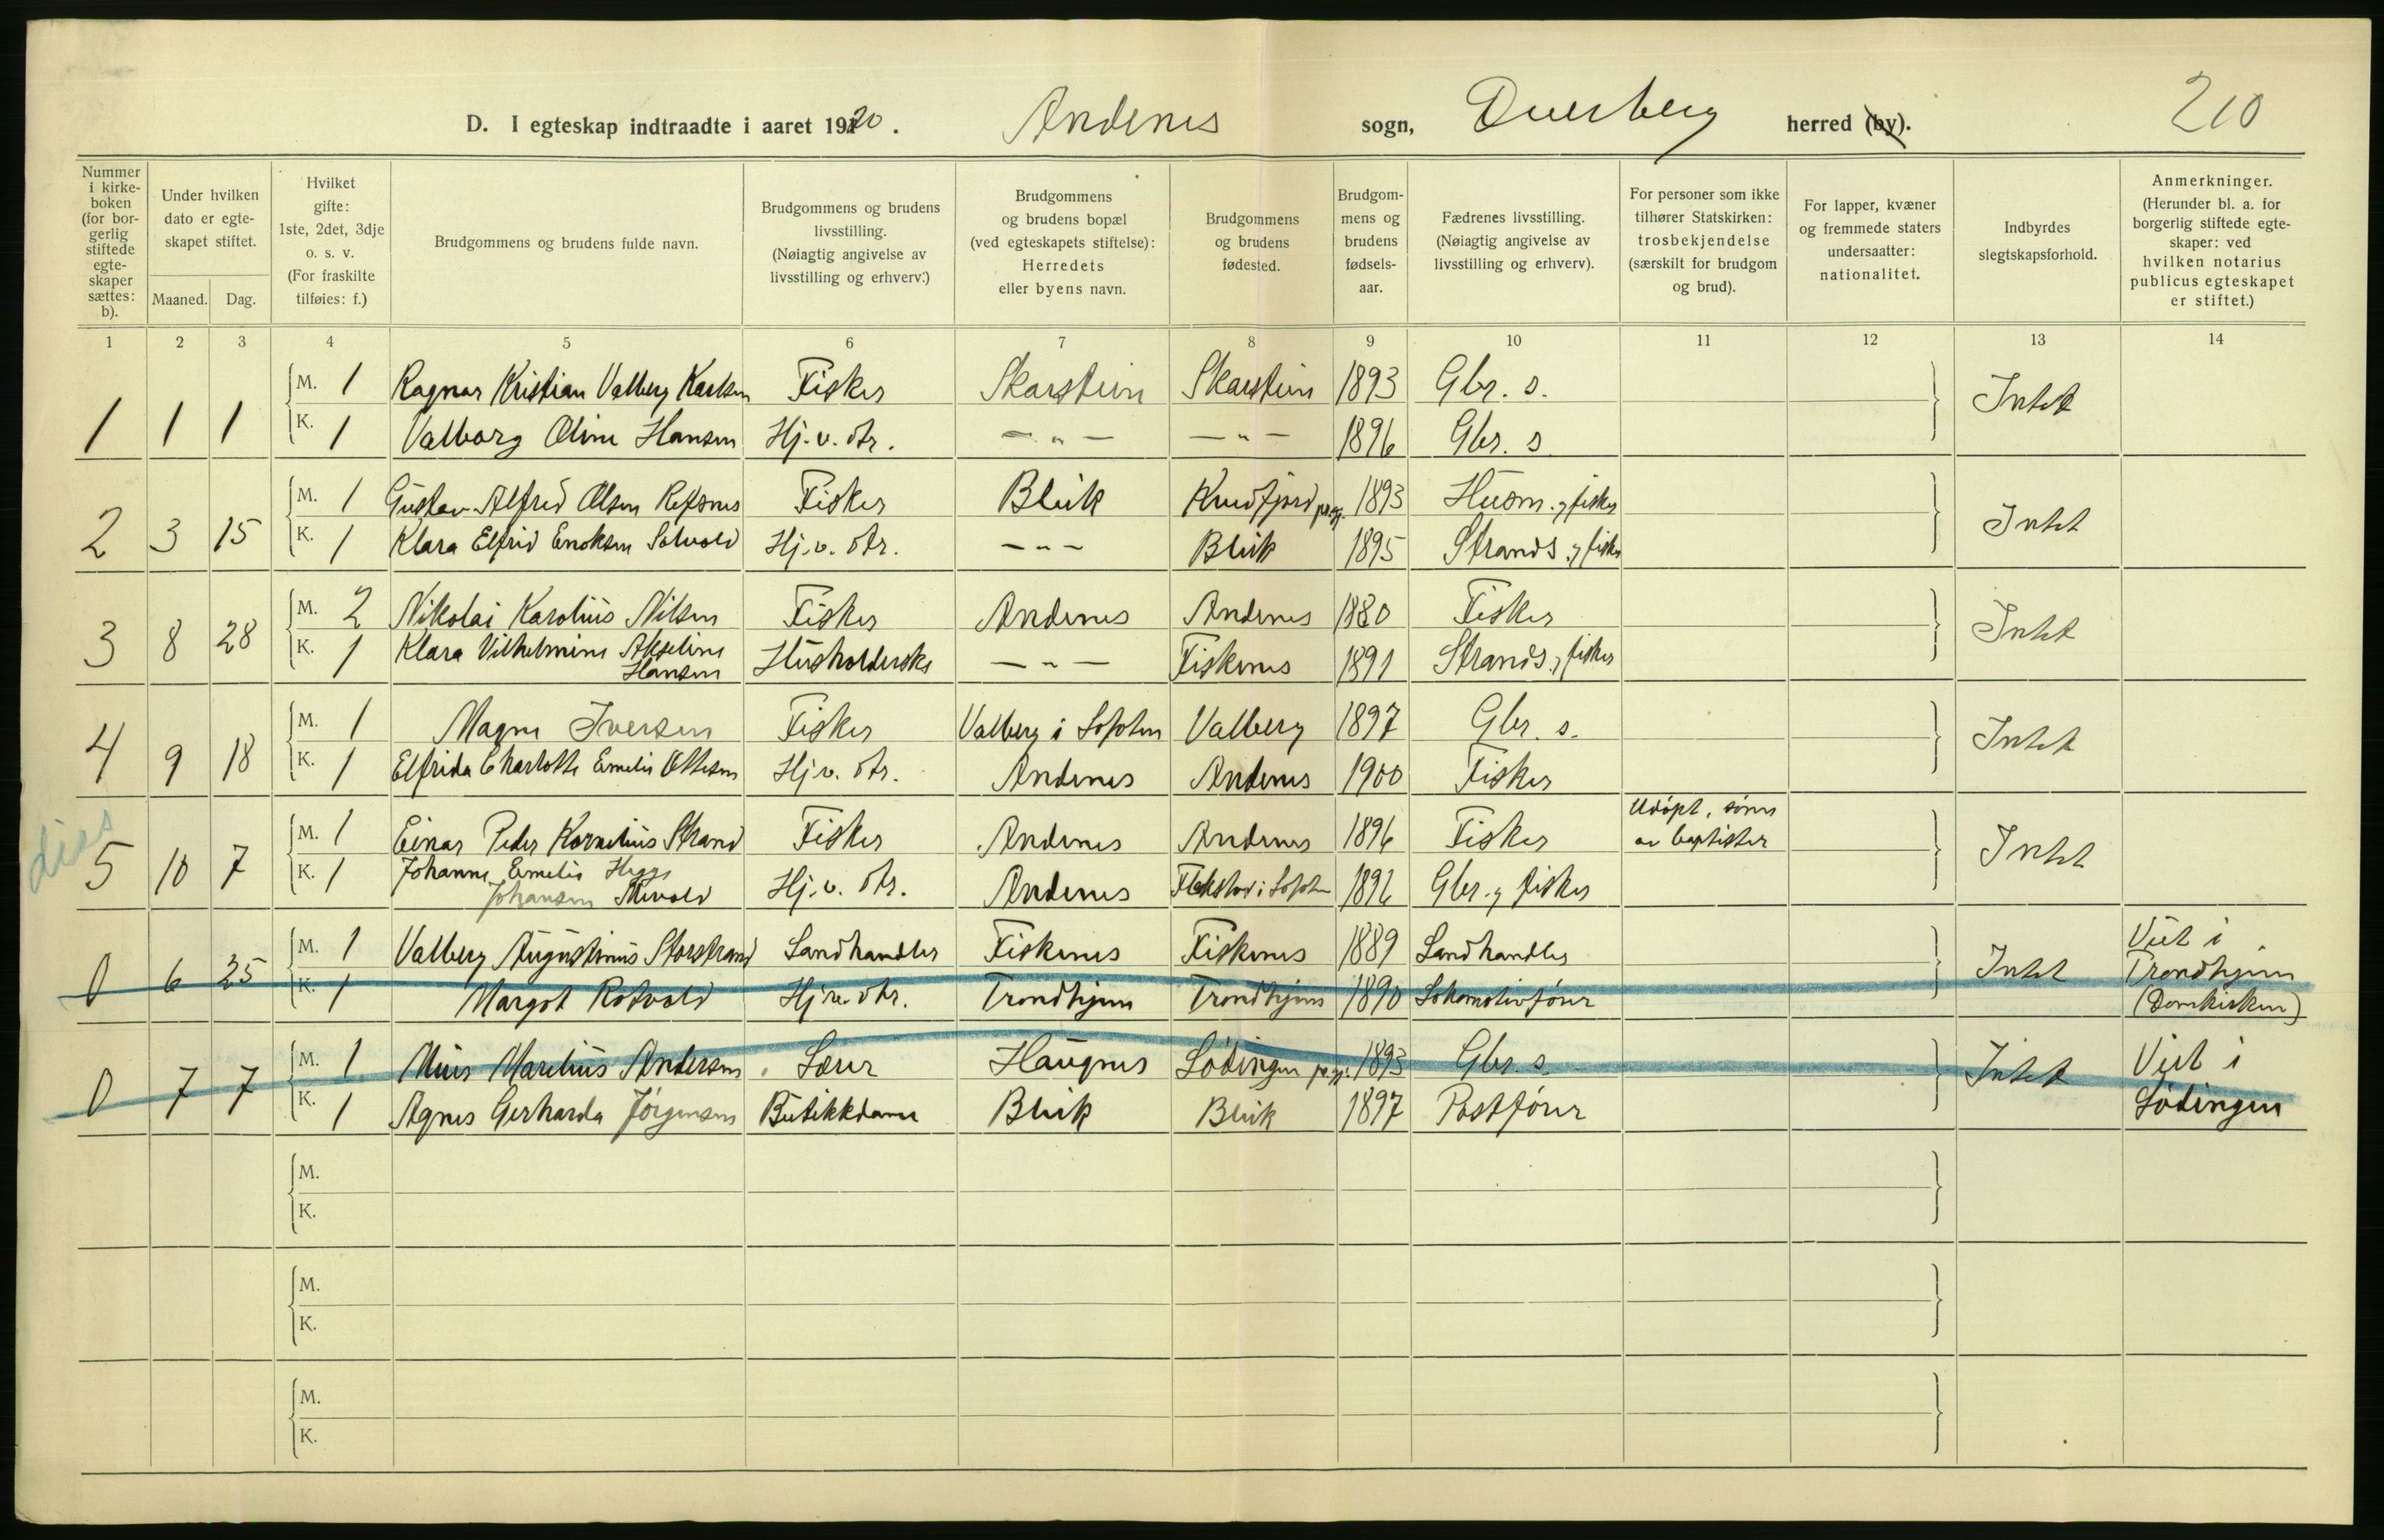 D. I egteskap indtraadte i aaret 1920. Andenes sogn, Dverberg herred (by). 210
Nummer i kirkeboken (for borgerlig stiftede egteskaper sættes: b). Under hvilken dato er egteskapet stiftet. Maaned. Dag. Hvilket gifte: 1ste, 2det, 3dje o. s. v. (For fraskilte tilføies: f.) Brudgommens og brudens fulde navn. Brudgommens og brudens livsstilling. (Nøiagtig angivelse av livsstilling og erhverv.) Brudgommens og brudens bopæl (ved egteskapets stiftelse): Herredets eller byens navn. Brudgommens og brudens fødested. Brudgommens og brudens fødselsaar. Fædrenes livsstilling. (Nøiagtig angivelse av livsstilling og erhverv). For personer som ikke tilhører Statskirken: trosbekjendelse (særskilt for brudgom og brud). For lapper, kvæner og fremmede staters undersaatter: nationalitet. Indbyrdes slegtskapsforhold. Anmerkninger. (Herunder bl. a. for borgerlig stiftede egteskaper: ved hvilken notarius publicus egteskapet er stiftet.)
1 2 3 4 5 6 7 8 9 10 11 12 13 14
1 1 1 M. 1 Ragnar Kristian Valberg Karlsen Fisker Skarstein Skarstein 1893 Gbr. s. Intet
K. 1 Valborg Oline Hansen Hj. v. otr. — " — — " — 1896 Gbr. s
2 3 15 M. 1 Gustav Alfred Olsen Refsnes Fisker Bleik Kvedfjord prgj. 1893 Husm. og fisker Intet
K. 1 Klara Elfrid Enoksen Solvold Hj. v. otr. — " — Bleik 1895 Strands. og fisker
3 8 28 M. 2 Nikolai Karolius Nilsen Fisker Andenes Andenes 1880 Fisker Intet
K. 1 Klara Vilhelmine Akseline Hansen Husholderske — " — Fiskenes 1891 Strands. og fisker
4 9 18 M. 1 Magne Iversen Fisker Valberg i Lofoten Valberg 1897 Gbr. s. Intet
K. 1 Elfrida Charlotte Emelie Ottesen Hj. v. otr. Andenes Andenes 1900 Fisker
diss
5 10 7 M. 1 Einar Peder Kornelius Strand Fisker Andenes Andenes 1896 Fisker Udøpt, sønn av baptister Intet
K. 1 Johanne Emelie Hegge Johansen Hj. v. otr. Andenes i Lofoten 1896 Gbr. og fisker
0 6 25 M. 1 Valberg Augustinus Storstrand Landhandler Fiskenes Fiskenes 1889 Landhandler Intet Viet i Trondhjem (Domkirken)
K. 1 Margot Rotvold Hj. v. otr. Trondhjem Trondhjem 1890 Lokomotivfører
0 7 7 M. 1 Marelius Andersen Lærer Haugnes Lødingen prgj. 1893 Gbr. s. Intet Viet i Lødingen
K. 1 Agnes Gerharda Jørgensen Butikkdame Bleik Bleik 1897 Postfører
M.
K.
M.
K.
M.
K.